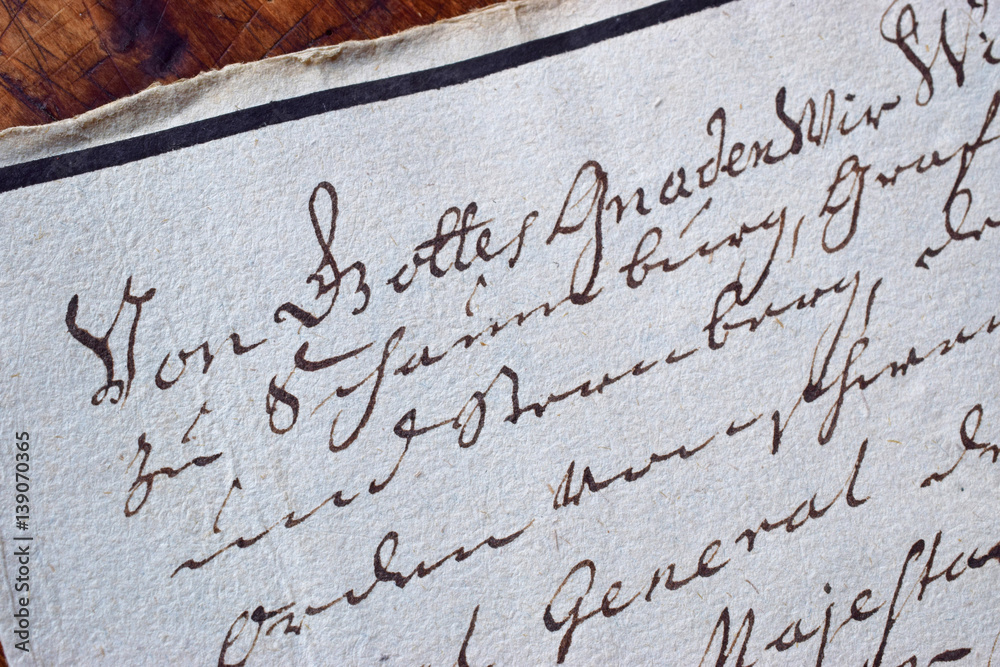 Von Gottes Gnaden Wir Wi
zu Schaumburg, Graf
und Sternberg, de
Orden von schwar
General de
Majesta
Adobe Stock | #139070365